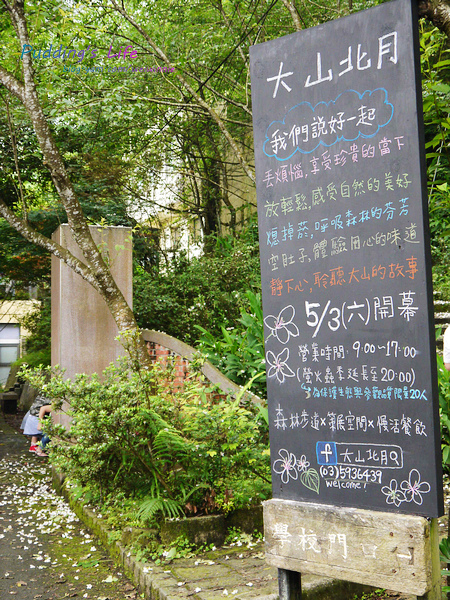 Pudding's Life
大山北月
我們說好一起
丟煩惱,享受珍貴的當下
放輕鬆,感受自然的美好
熄掉菸,呼吸森林的芬芳
空肚子,體驗用心的味道
靜下心,聆聽大山的故事
5/3(六)開幕
營業時間:9:00~17:00
(螢火蟲季延長至20:00)
為保護生態與參觀品質限量20人
森林步道x策展空間x慢活餐飲
f 大山北月
(03)5936439
welcome!
學校門口